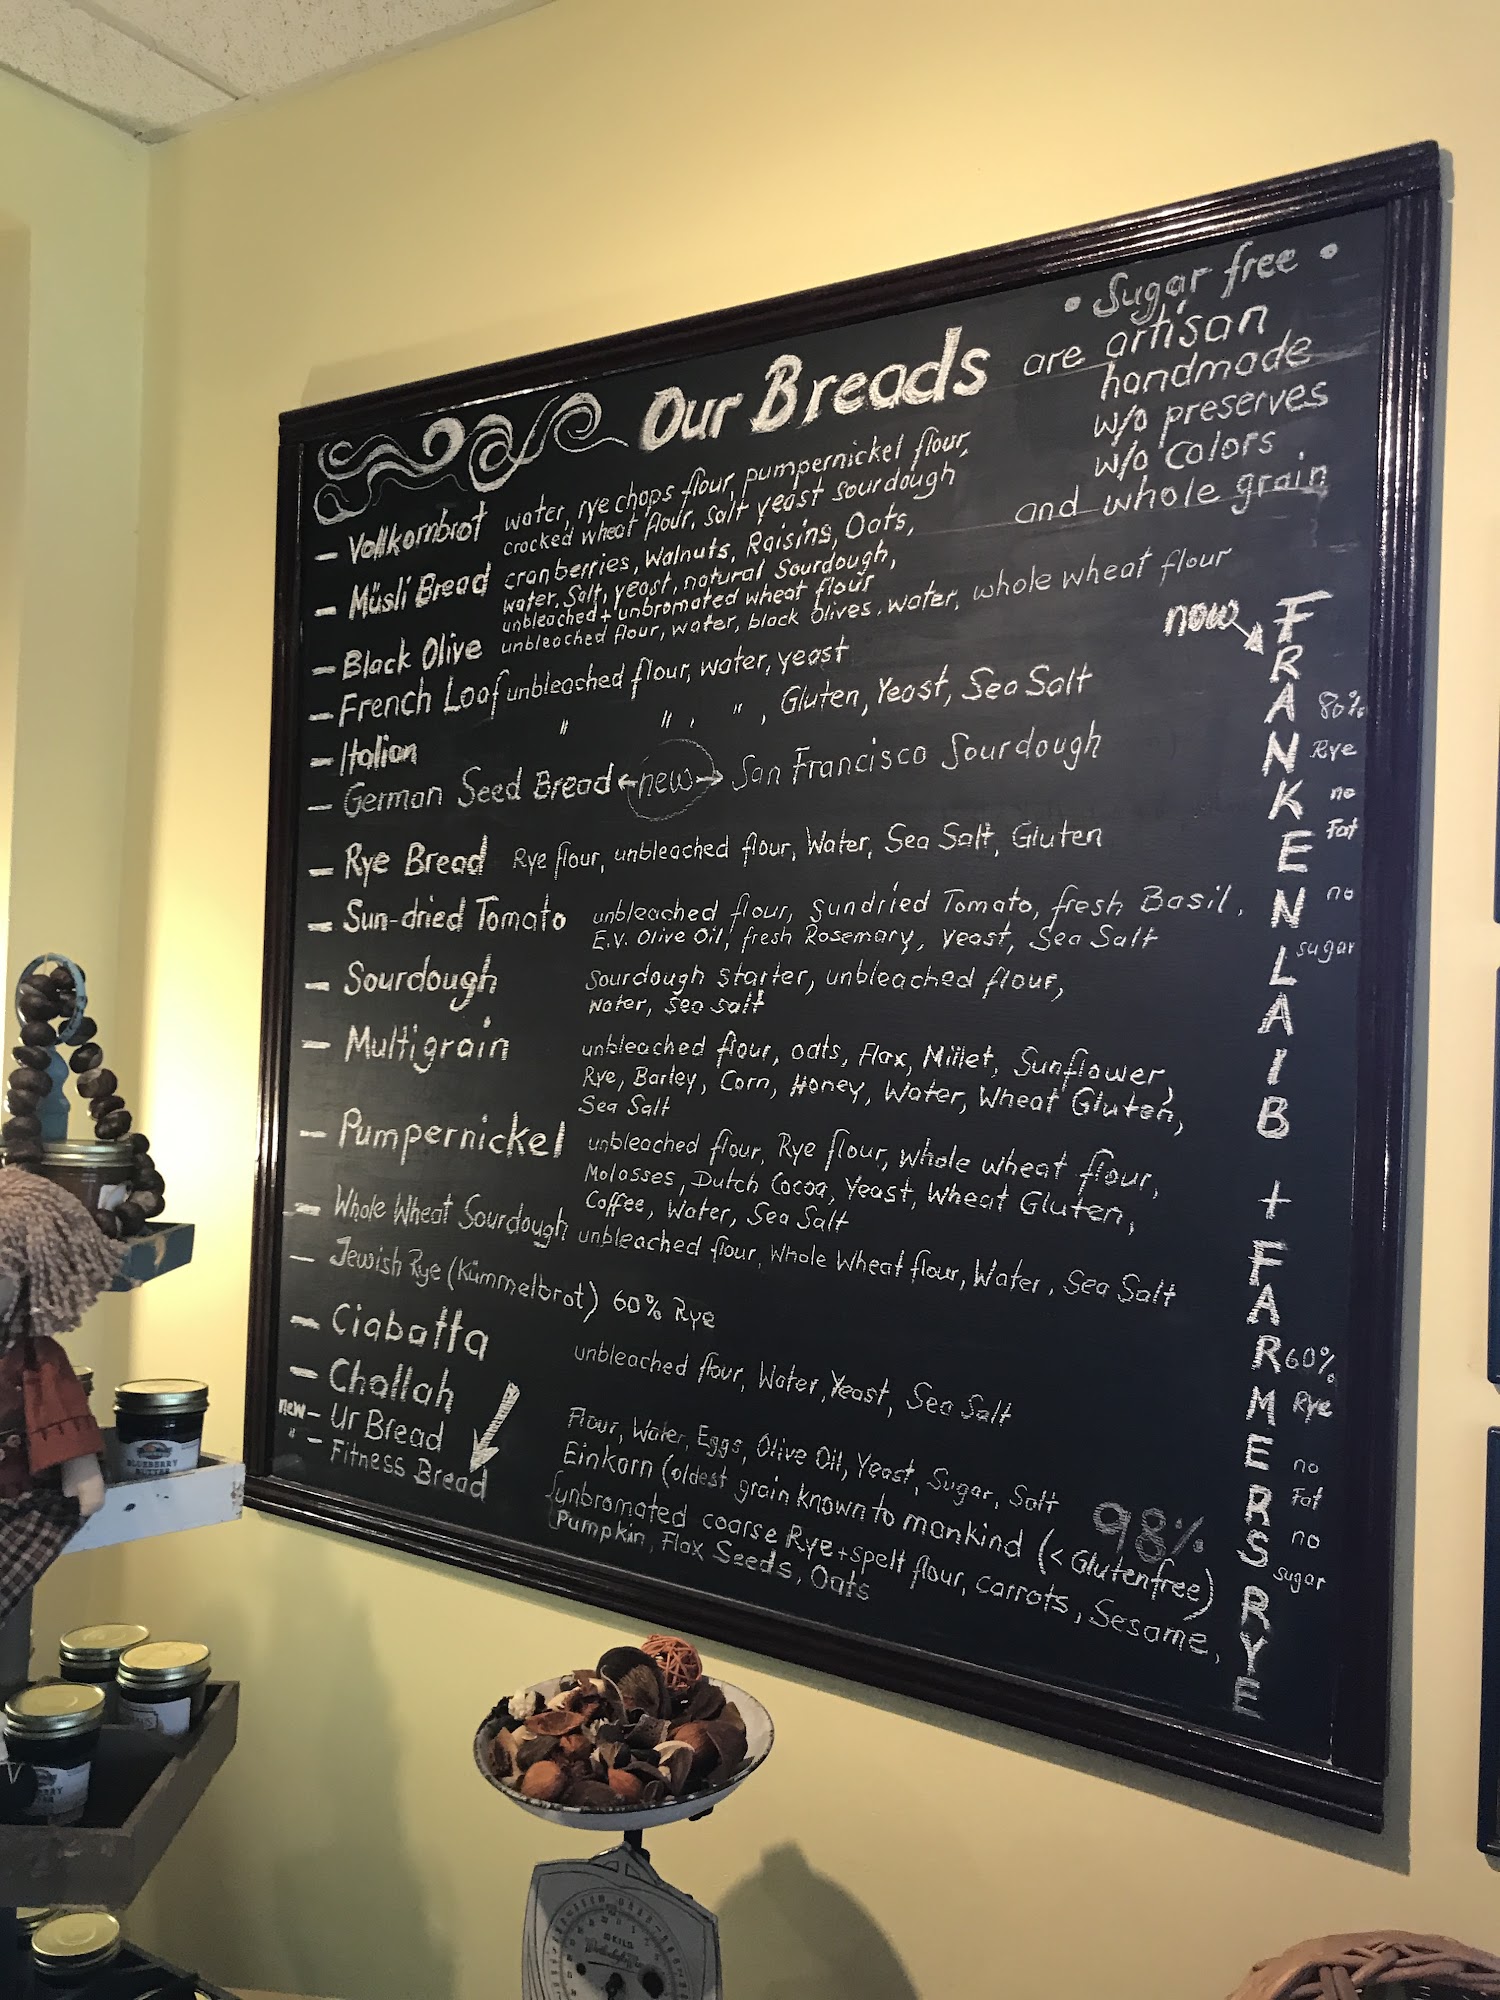 • Sugar free •
Our Breads are artisan
handmade
w/o preserves
w/o colors
and whole grain
– Vollkornbrot water, rye chops flour, pumpernickel flour,
cracked wheat flour, salt yeast sourdough
– Müsli Bread cranberries, Walnuts, Raisins, Oats,
water, Salt, yeast, natural Sourdough,
unbleached + unbromated wheat flour
– Black Olive unbleached flour, water, black olives, water, whole wheat flour
– French Loaf unbleached flour, water, yeast
– Italian " " , " , Gluten, Yeast, Sea Salt
– German Seed Bread ← new → San Francisco Sourdough
– Rye Bread Rye flour, unbleached flour, Water, Sea Salt, Gluten
– Sun-dried Tomato unbleached flour, sundried Tomato, fresh Basil,
E.V. Olive Oil, fresh Rosemary, Yeast, Sea Salt
– Sourdough Sourdough starter, unbleached flour,
Water, Sea salt
– Multigrain unbleached flour, oats, Flax, Millet, Sunflower,
Rye, Barley, Corn, Honey, Water, Wheat Gluten,
Sea Salt
– Pumpernickel unbleached flour, Rye flour, whole wheat flour,
Molasses, Dutch Cocoa, Yeast, Wheat Gluten,
Coffee, Water, Sea Salt
– Whole Wheat Sourdough unbleached flour, Whole Wheat flour, Water, Sea Salt
– Jewish Rye (Kümmelbrot) 60% Rye
– Ciabatta unbleached flour, Water, Yeast, Sea Salt
– Challah Flour, Water, Eggs, Olive Oil, Yeast, Sugar, Salt
new – Ur Bread Einkorn (oldest grain known to mankind (< Glutenfree)
98%
" – Fitness Bread unbromated coarse Rye + spelt flour, carrots, Sesame,
Pumpkin, Flax Seeds, Oats
now
FRANKENLAIB + FARMERS RYE
80%
Rye
no
Fat
no
sugar
60%
Rye
no
Fat
no
sugar
BLUEBERRY
BUTTER